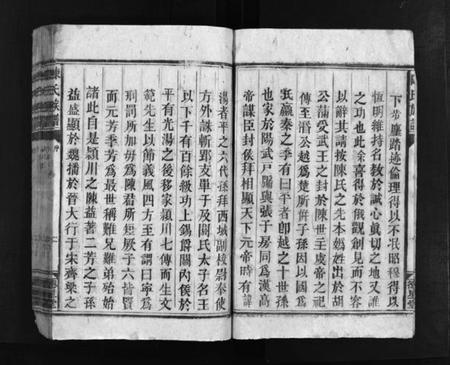 下步塵踏迹倫理得以不泯昭穆得以
恆明維持名教於誠心真切之地又誰
之功也此余喜得於俄觀創見而不容
以辭其請按陳氏之先本媯姓出於胡
公滿受武王之封於陳世王虞帝之祀
傳至湣公越爲楚所幷子孫因以國爲
氏嬴秦之季有曰平者卽越之十世孫
也家於陽武戸牖與張子房同爲漢高
帝謀臣封侯拜相顯天下元帝時有諱
湯者平之六代孫拜西域副校尉奉使
方外誅斬郅支單于及閼氏太子名王
以下千有百餘級功上錫爵關內侯於
平有光湯之後移家潁川七傳而生文
範先生以節義風四方至有謂曰寧爲
刑罰所加毋爲陳君所短厥子六皆賢
而元方季方爲最世稱難兄難弟殆始
諸此自是潁川之陳益著二方之子孫
益盛顯於魏播於晉大行于宋齊梁之
陳氏族譜